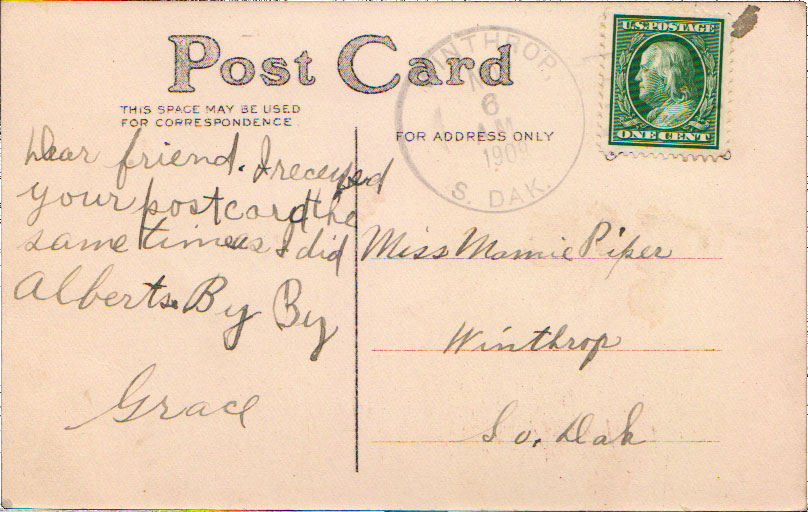 Post Card
THIS SPACE MAY BE USED
FOR CORRESPONDENCE
FOR ADDRESS ONLY
WINTHROP,
6
AM
1909
S. DAK.
U.S. POSTAGE
ONE CENT
Dear friend. I received
your postcard the
same time as I did
Alberts. By By
Grace
Miss Mamie Piper
Winthrop
So. Dak